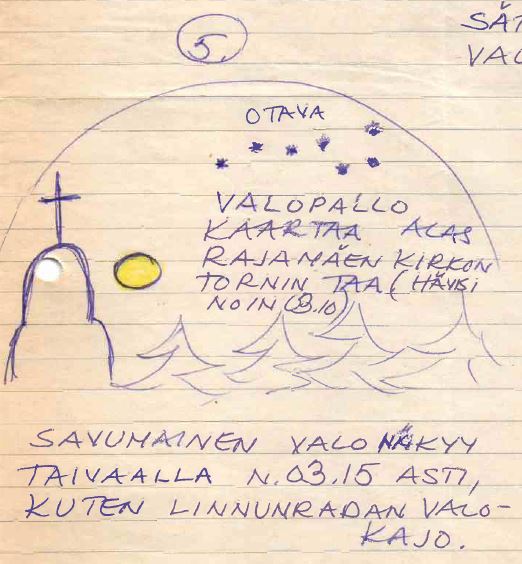 5.
SÄT
VALO
OTAVA
VALOPALLO
KAARTAA ALAS
RAJAMÄEN KIRKON
TORNIN TAA (HÄVISI
NOIN (3.10)
SAVUMAINEN VALO NÄKYY
TAIVAALLA N.03.15 ASTI,
KUTEN LINNUNRADAN VALO-
KAJO.